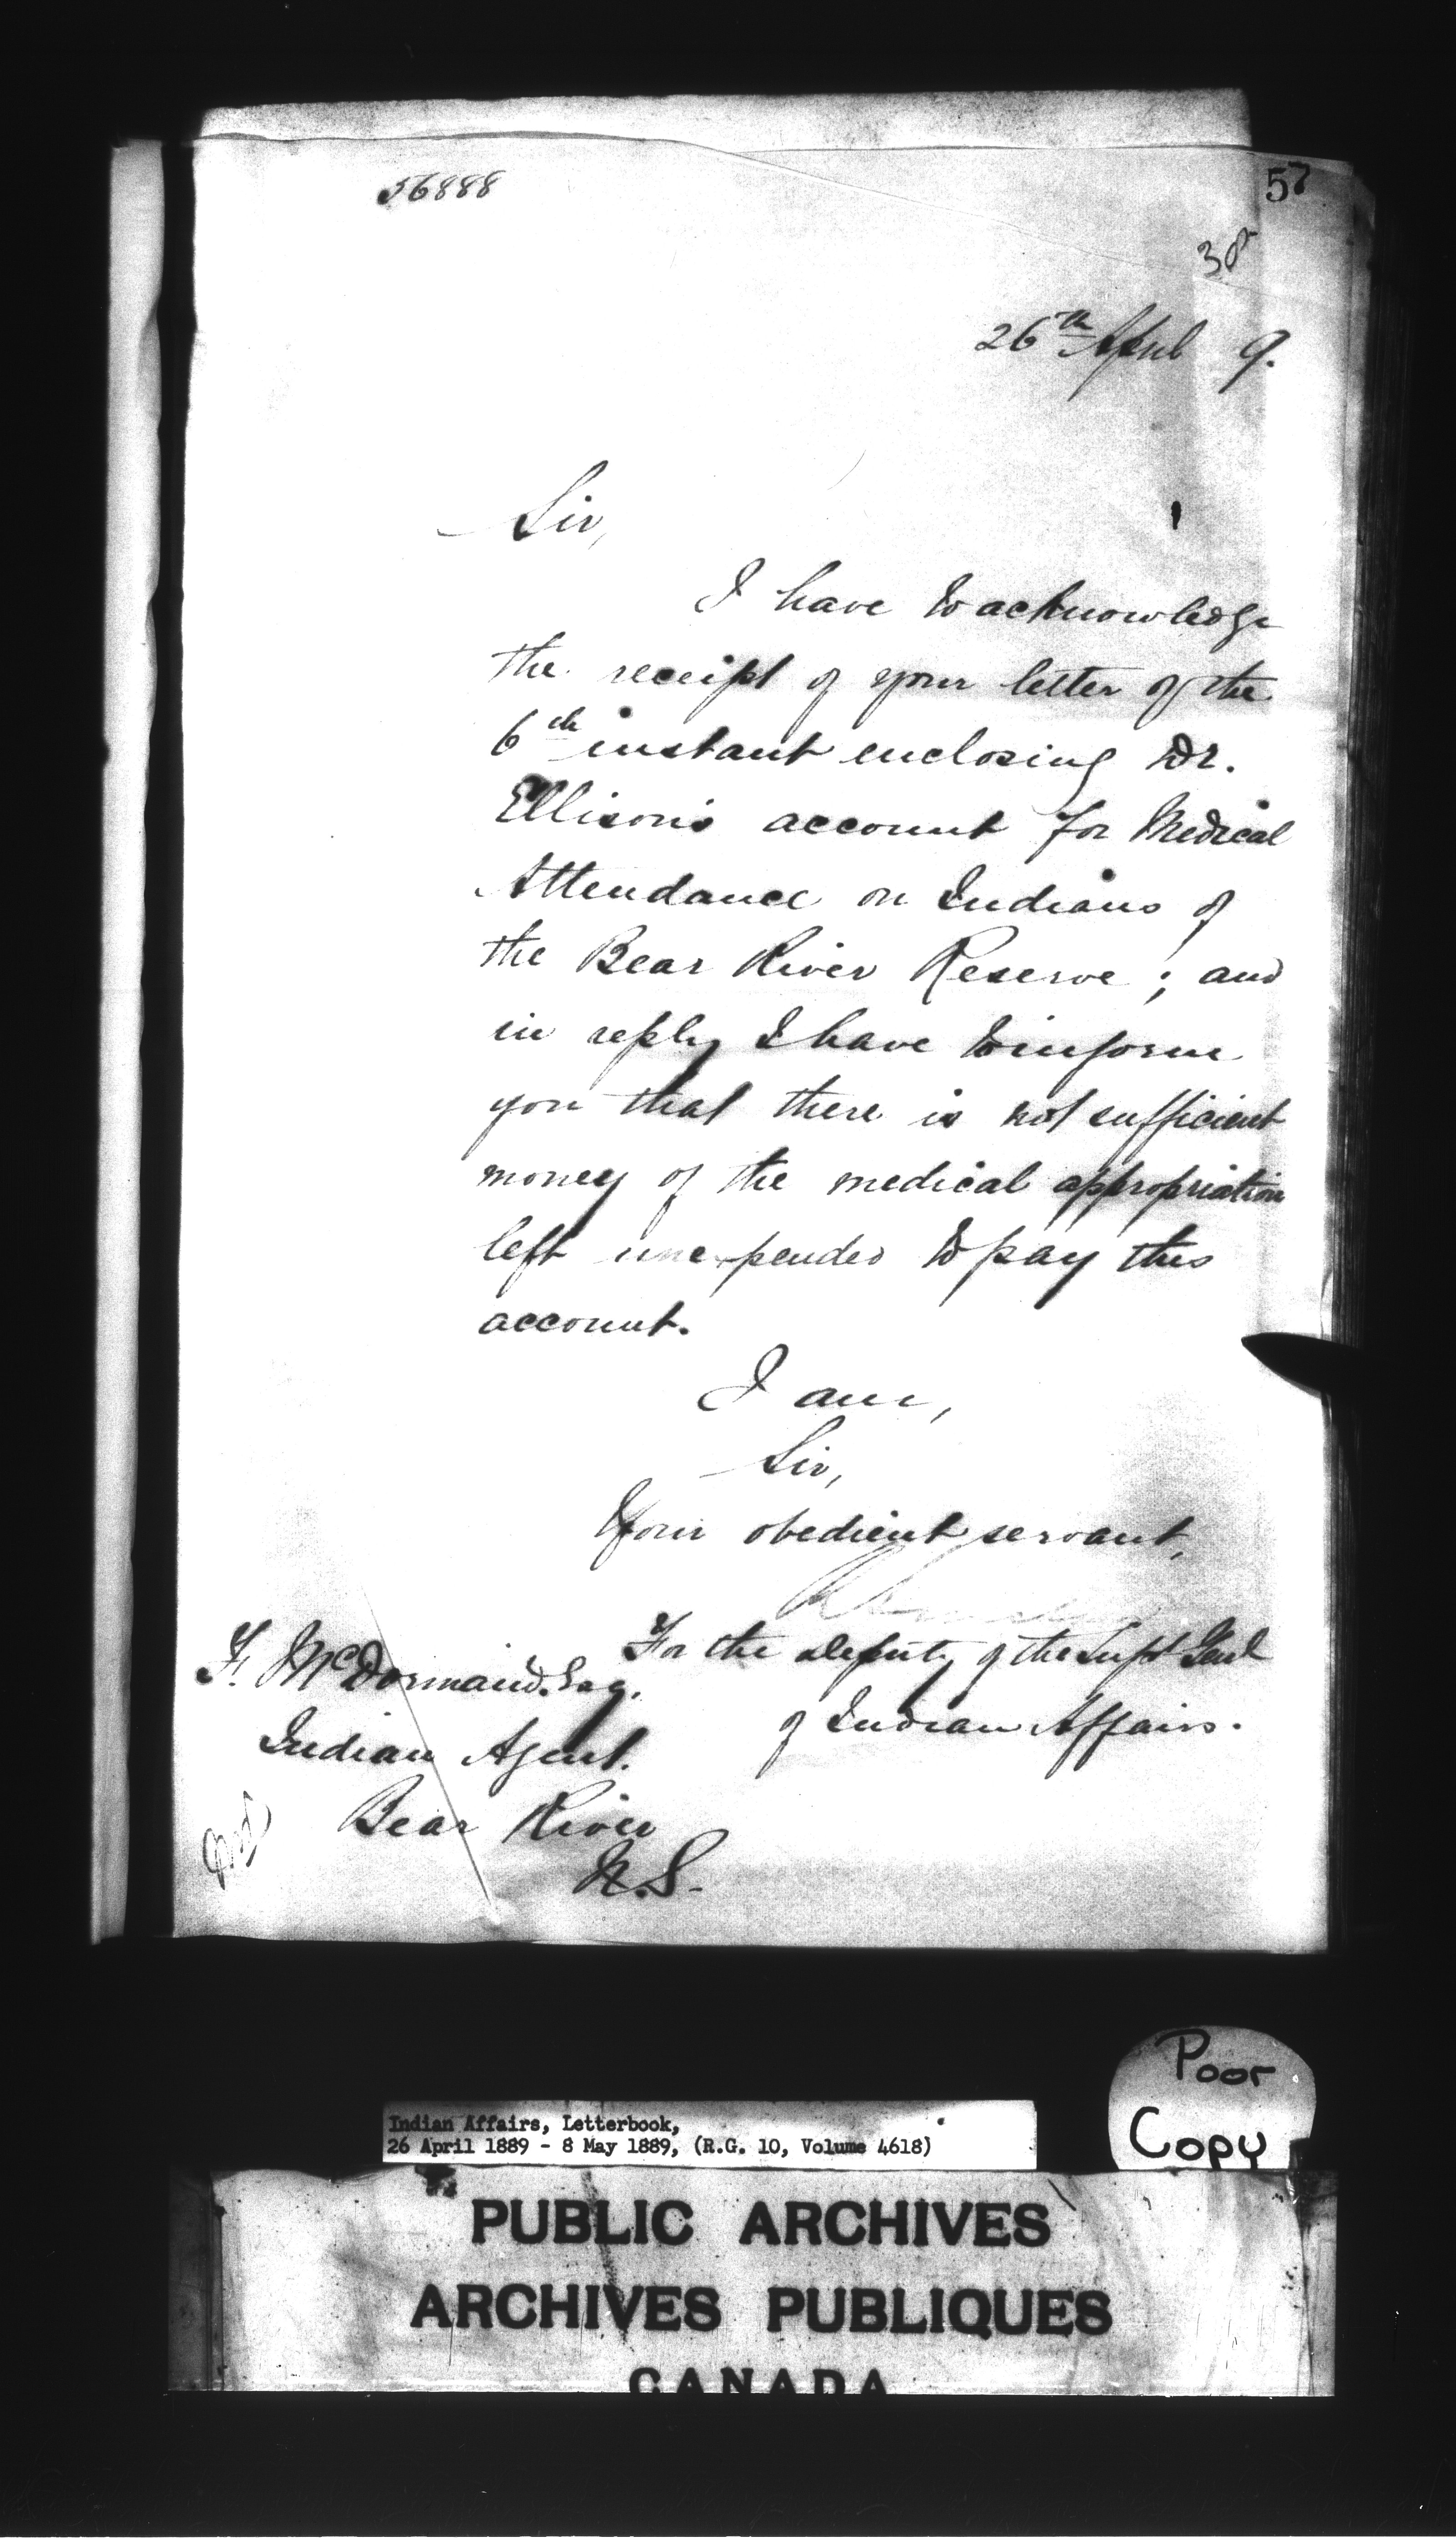 56888
57
26th April 9.
Sir,
I have to acknowledge
the receipt of your letter of the
6th instant enclosing Dr.
Ellison's account for Medical
Attendance on Indians of
the Bear River Reserve; and
in reply I have to inform
you that there is not sufficient
money of the medical appropriation
left unexpended to pay this
account.
I am,
Sir,
Your obedient servant,
For the Deputy of the Supt Genl
of Indian Affairs.
F. McDormand. Esq.
Indian Agent.
Bear River
N.S.
Poor
Copy
Indian Affairs, Letterbook,
26 April 1889 - 8 May 1889, (R.G. 10, Volume 4618)
PUBLIC ARCHIVES
ARCHIVES PUBLIQUES
CANADA